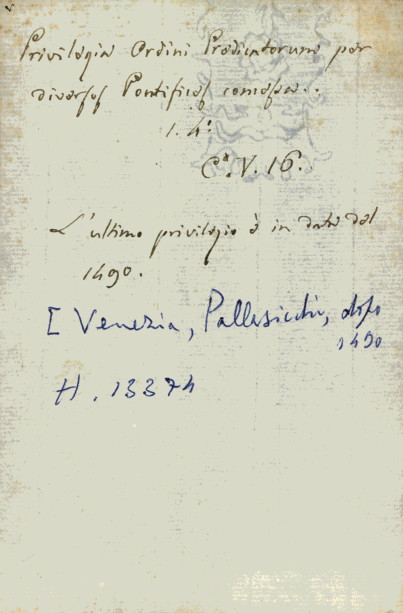 Privilegia Ordini Predicatorum per
diversos Pontifices concessa..
1. 4:
Cª. V. 16.
L'ultimo privilegio è in data del
1490.
[Venezia, dopo
1490
H. 13374